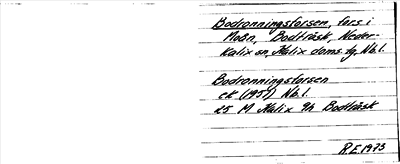 Bodronningsforsen, fors i
Moån, Bodträsk, Neder-
kalix sn, Kalix doms. tg, Nb.l.
Bodronningsforsen
ek (1957) Nb.l.
25 M Kalix 9h Bodträsk
R.E. 1973